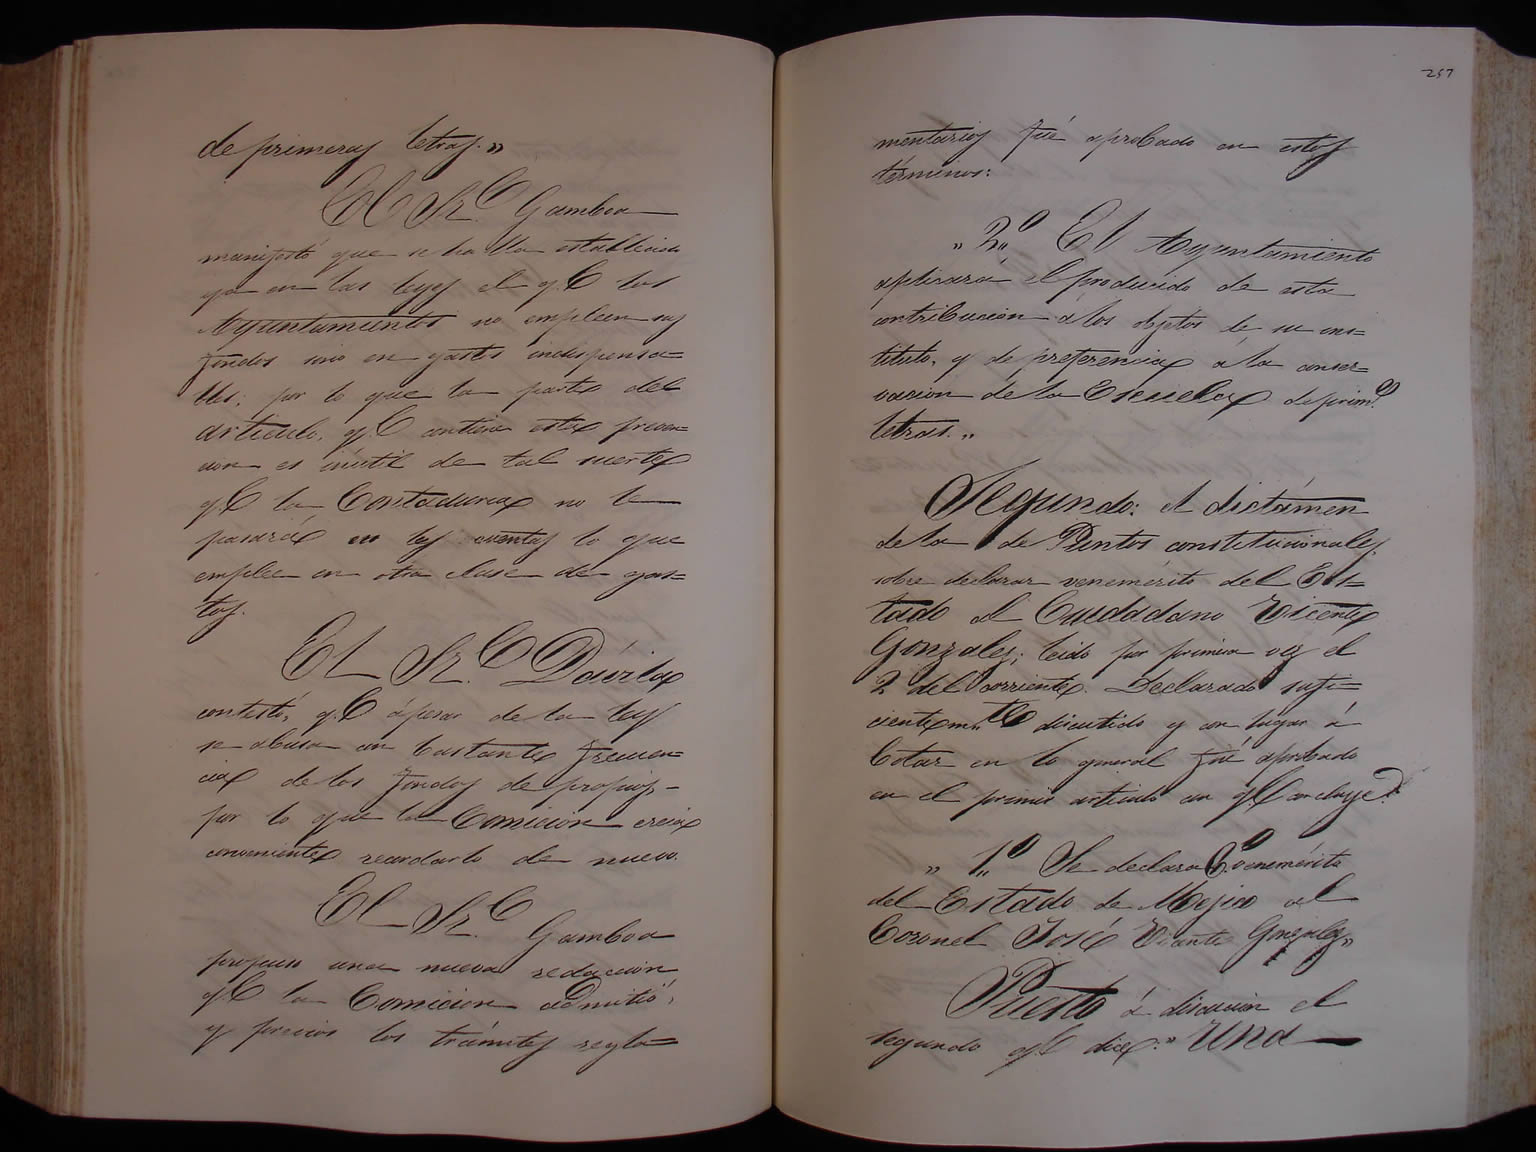 de primeras letras."
El Sr. Gamboa
manifestó que se halla establecido
ya en las leyes el q.e los
Ayuntamientos no empleen sus
fondos sino en gastos indispensa=
bles; por lo que la parte del
articulo, q.e contiene esta preven=
cion es inútil de tal suerte
q.e la Contaduria no le
pasará en las cuentas lo que
emplee en otra clase de gas=
tos.
El Sr. Dávila
contestó, q.e ápesar de las leyes
se abusa con bastante frecuen=
cia de los fondos de propios,
por lo que la Comicion creia
conveniente recordarlo de nuevo.
El Sr. Gamboa
propuso una nueva redaccion
q.e la Comicion admitió,
y previos los trámites regla=
257
mentarios fué aprobado en estos
términos:
"2.o El Ayuntamiento
aplicará el producido de esta
contribucion á los objetos de su ins=
tituto, y de preferencia á la conser=
vacion de la Escuela de prim.as
letras."
Segundo: el dictámen
de la de Puntos constitucionales
sobre declarar venemérito del Es=
tado al Ciudadano Vicente
Gonzales; leido por primera vez el
2 del corriente. Declarado sufi=
cientem.te discutido y con lugar á
votar en lo general fué aprobado
en el primer articulo con q.e concluye.
"1.o Se declara venemérito
del Estado de Mejico al
Coronel José Vicente Gonzales"
Puesto á discucion el
segundo q.e dice: "Una